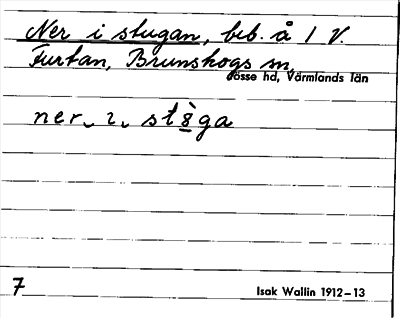 Ner i stugan, beb. å 1 V.
Furtan, Brunskogs sn,
Jösse hd, Värmlands län
ner ɩ stɞ̀ga
7
Isak Wallin 1912–13